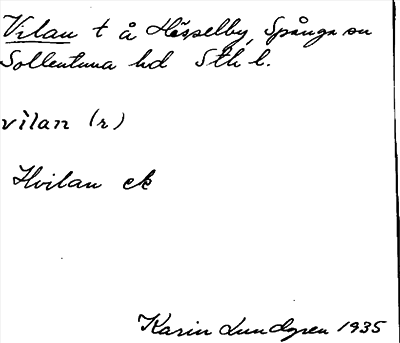 Vilan t å Hässelby, Spånga sn
Sollentuna hd Sth l.
vìlan (r)
Hvilan ek
Karin Lundgren 1935